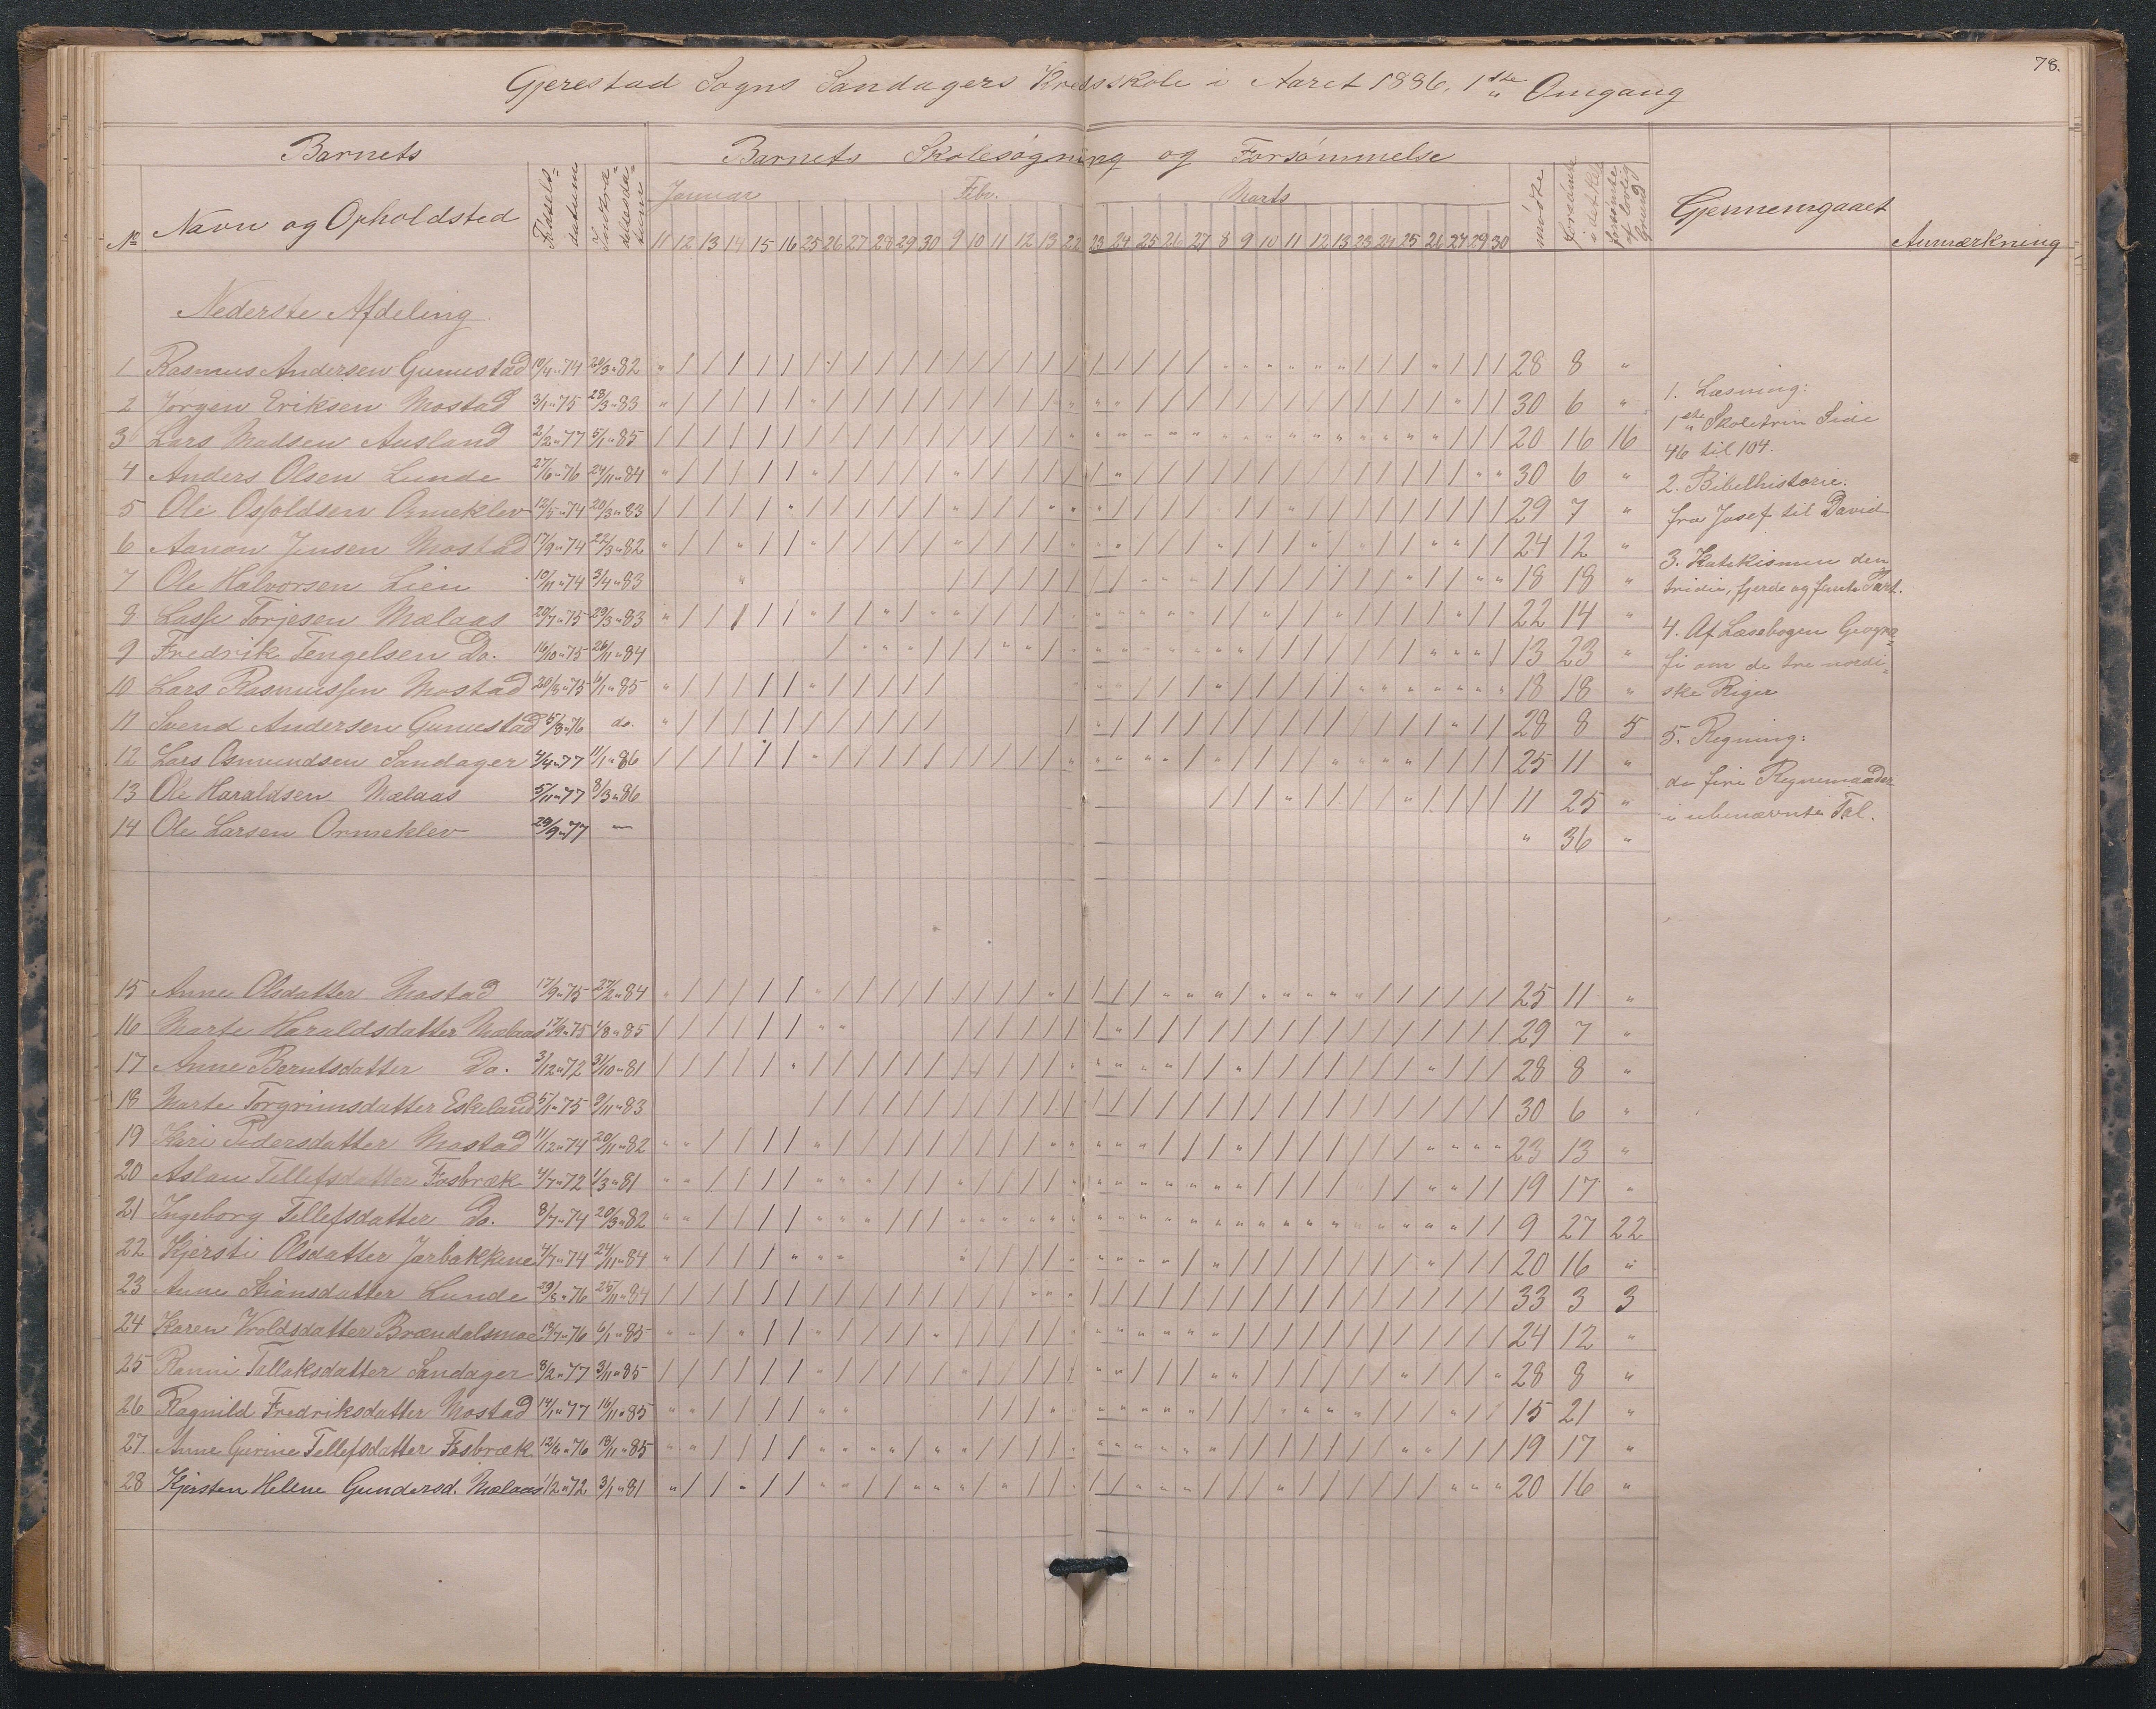 78.
Gjerestad Sogns Sandagers Kredsskole i Aaret 1886, 1ste Omgang
Barnets
Barnets Skolesøgning og Forsømmelse
No
Navn og Opholdsted
Fødsels-datum
Indskrivelsesdatum
Januar Febr. Marts
11 12 13 14 15 16 25 26 27 28 29 30 9 10 11 12 13 22 23 24 25 26 27 8 9 10 11 12 13 23 24 25 26 27 29 30
mødte
forsømte i det hele
forsømte af lovlig Grund
Gjennemgaaet
Anmærkning
Nederste Afdeling
1 Rasmus Andersen Gumestad 10/4 " 74 20/3 " 82 28 8 "
2 Jørgen Eriksen Mostad 3/1 " 75 28/3 " 83 30 6 "
3 Lars Madsen Ausland 2/2 " 77 5/1 " 85 20 16 16
4 Anders Olsen Lunde 27/6 " 76 24/11 " 84 30 6 "
5 Ole Osfoldsen Ormeklev 12/5 " 74 20/3 " 83 29 7 "
6 Aanon Jensen Mostad 17/9 " 74 22/3 " 82 24 12 "
7 Ole Halvorsen Lien 10/11 " 74 3/4 " 83 18 18 "
8 Lasse Torjesen Mælaas 20/7 " 75 29/3 " 83 22 14 "
9 Fredrik Tengelsen Do. 16/10 " 75 26/11 " 84 13 23 "
10 Lars Rasmussen Mostad 20/8 " 75 6/1 " 85 18 18 "
11 Svend Andersen Gumestad 5/8 " 76 do. 28 8 5
12 Lars Osmundsen Sandager 4/4 " 77 11/1 " 86 25 11 "
13 Ole Haraldsen Mælaas 5/11 " 77 8/3 " 86 11 25 "
14 Ole Larsen Ormeklev 29/9 " 77 — " 36 "
15 Anne Olsdatter Mostad 17/9 " 75 27/2 " 84 25 11 "
16 Marte Haraldsdatter Mælaas 17/9 " 75 1/8 " 85 29 7 "
17 Anne Berntsdatter Do. 3/12 " 72 31/10 " 81 28 8 "
18 Marte Torgrimsdatter Eskeland 5/1 " 75 9/11 " 83 30 6 "
19 Kari Pedersdatter Mostad 11/12 " 74 20/11 " 82 23 13 "
20 Aslau Tellefsdatter Fosbræk 4/7 " 72 1/3 " 81 19 17 "
21 Ingeborg Tellefsdatter Do. 8/7 " 74 20/3 " 82 9 27 22
22 Kjersti Olsdatter Jorbakkene 4/7 " 74 24/11 " 84 20 16 "
23 Anne Stiansdatter Lunde 29/8 " 76 25/11 " 84 33 3 3
24 Karen Vroldsdatter Brændalsmoe 19/7 " 76 6/1 " 85 24 12 "
25 Ranni Tallaksdatter Sandager 8/2 " 77 3/11 " 85 28 8 "
26 Ragnild Fredriksdatter Mostad 14/1 " 77 16/11 " 85 15 21 "
27 Anne Gurine Tellefsdatter Fosbræk 12/6 " 76 18/11 " 85 19 17 "
28 Kjersten Helene Gundersd. Mælaas 1/2 " 72 3/1 " 81 20 16 "
1. Læsning:
1ste Skoletrin Side
46 til 104.
2. Bibelhistorie:
fra Josef til David
3. Katekismen den
tridie, fjerde og femte Part.
4. Af Læsebogen Geogra=
fi om de tre nordi=
ske Riger
5. Regning:
de fire Regnemaader
i ubenævnte Tal.